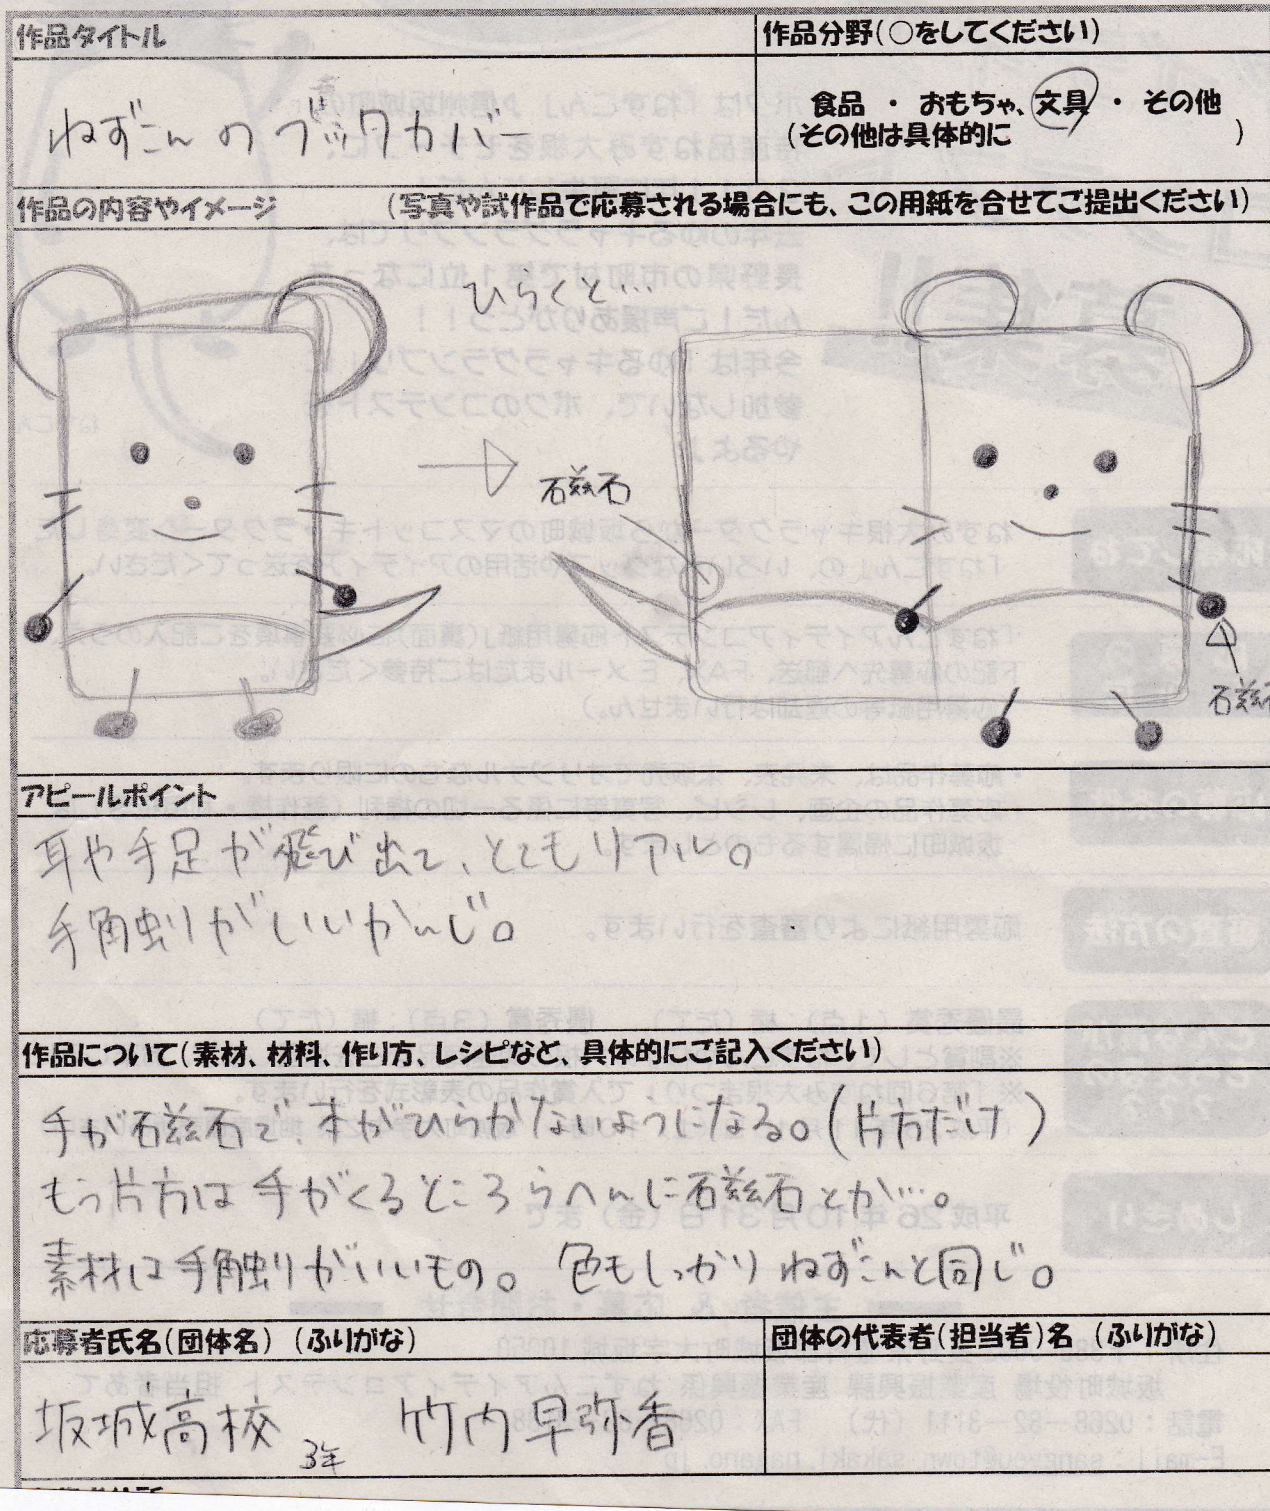 作品タイトル
作品分野(○をしてください)
ねずこんのブックカバー
食品 ・ おもちゃ、文具 ・ その他
(その他は具体的に )
作品の内容やイメージ (写真や試作品で応募される場合にも、この用紙を合せてご提出ください)
ひらくと…
磁石
磁石
アピールポイント
耳や手足が飛び出て、とてもリアル。
手触りがいいかんじ。
作品について(素材、材料、作り方、レシピなど、具体的にご記入ください)
手が磁石で、本がひらかないようになる。(片方だけ)
もう片方は手がくるところらへんに磁石とか…。
素材は手触りがいいもの。 色もしっかりねずこんと同じ。
応募者氏名(団体名) (ふりがな)
団体の代表者(担当者)名 (ふりがな)
坂城高校 3年 竹内早弥香